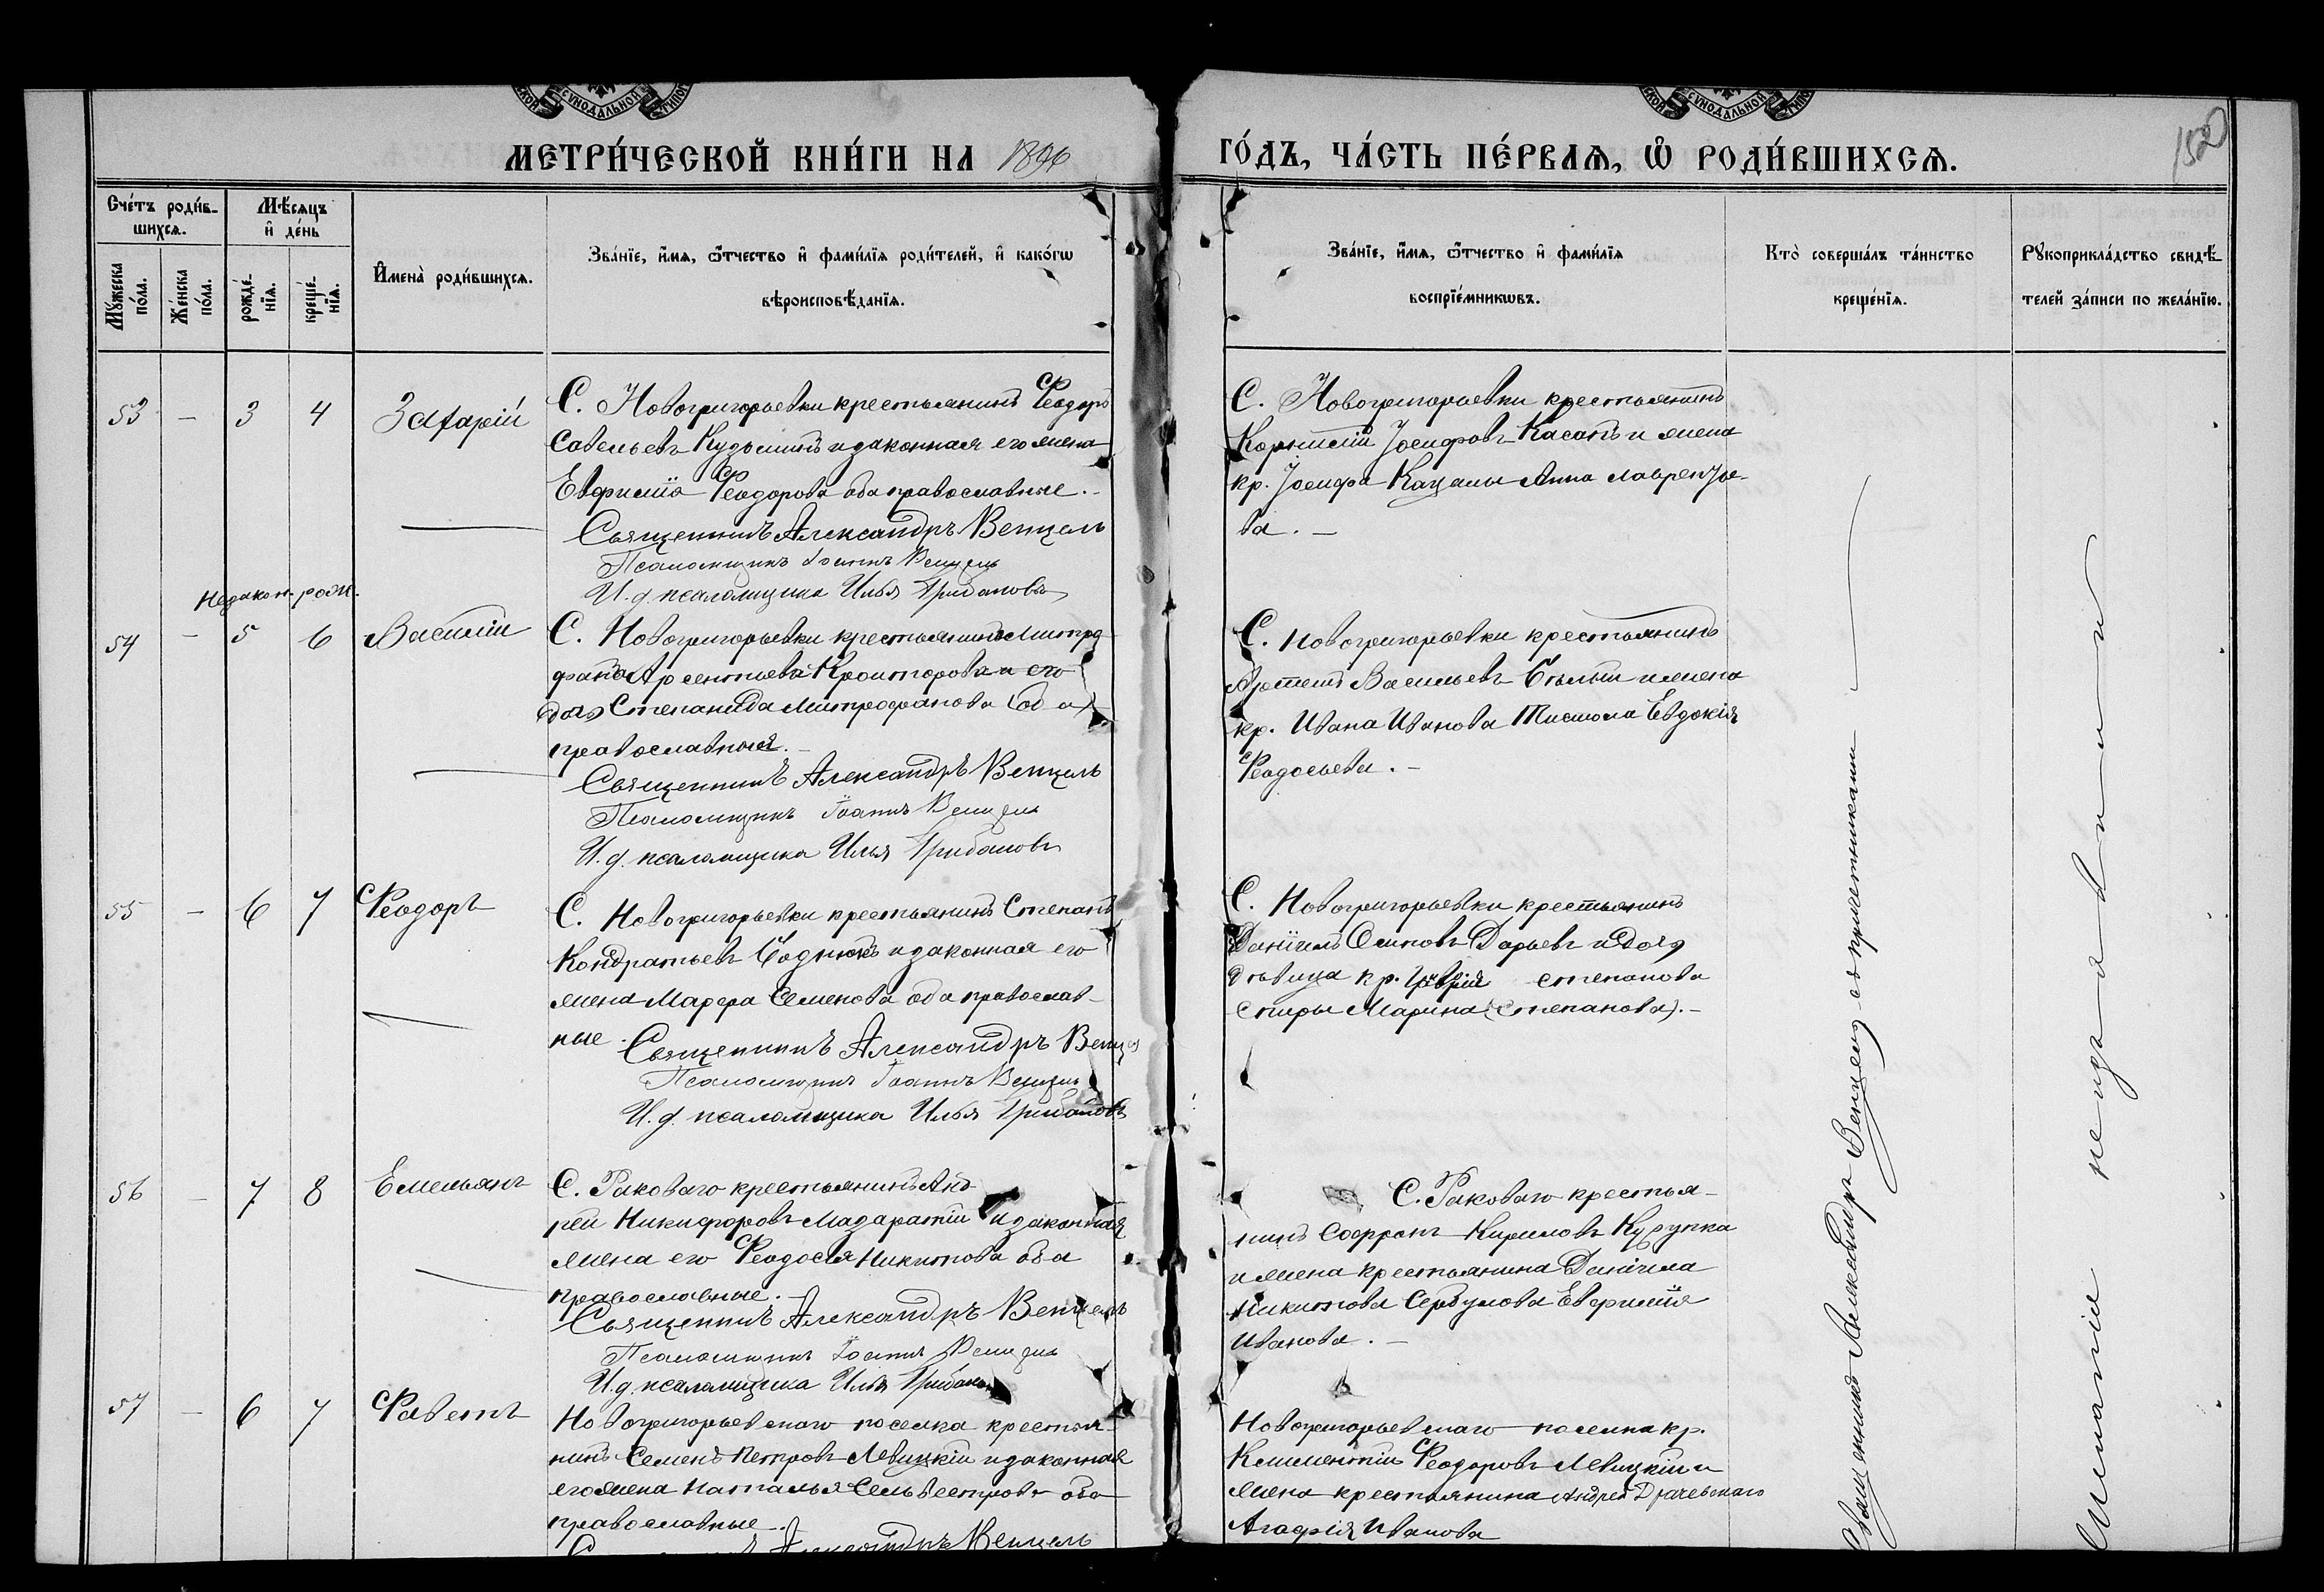 СУНОДАЛЬНОЙ
СУНОДАЛЬНОЙ
МЕТРИ́ЧЕСКОЙ КНИ́ГИ НА 1896
ГО́ДЪ, ЧА́СТЬ ПЕ́РВАѦ, Ѿ РОДИ́ВШИХСѦ.
152
Сче́тъ роди́в-
шихсѧ.
Мѣ́сѧцъ
и҆ де́нь
Мꙋ́жеска
по́ла.
Же́нска
по́ла.
рожде́-
нїѧ.
креще́-
нїѧ.
И҆мена̀ роди́вшихсѧ.
Зва́нїе, и҆́мѧ, ѻ҆́тчество и҆ фами́лїѧ роди́телей, и҆ како́гѡ
вѣроисповѣ́данїѧ.
Зва́нїе, и҆́мѧ, ѻ҆́тчество и҆ фами́лїѧ
воспрїе́мникѡвъ.
Кто̀ соверша́лъ та́инство
креще́нїѧ.
Рꙋкоприкла́дство свидѣ́-
телей за́писи по жела́нїю.
53 — 3 4 Захарій
С. Новогригорьевки крестьянинъ Ѳеодоръ
Савельевъ Кузьминъ и законная его жена
Евфимія Ѳеодорова оба православные.
Священникъ Александръ Венцель
Псаломщикъ Іоаннъ Венцель
И.д. псаломщика Илья Грибановъ
С. Новогригорьевки крестьянинъ
Корнилій Іосифовъ Касапъ и жена
кр. Іосифа Кацалы Анна Лаврентье-
ва. —
Незакон. рожд.
54 — 5 6 Василій
С. Новогригорьевки крестьянина Митро
фана Арсентиева Кроиторова и его
дочь Степанида Митрофанова (оба)
православныя.
Священникъ Александръ Венцель
Псаломщикъ Іоаннъ Венцель
И.д. псаломщика Илья Грибановъ
С. Новогригорьевки крестьянинъ
Артемій Васильевъ Бѣлый и жена
кр. Ивана Иванова Евдокія
Ѳеодосьева. —
55 — 6 7 Ѳеодоръ
С. Новогригорьевки крестьянинъ Степанъ
Кондратьевъ Боднюкъ и законная его
жена Марфа Семенова оба православ-
ные.
Священникъ Александръ Венцель
Псаломщикъ Іоаннъ Венцель
И.д. псаломщика Илья Грибановъ
С. Новогригорьевки крестьянинъ
Даніилъ Осиповъ Дарьевъ и дочь
дѣвица кр. Степанова
Спиры Марина (Степанова). —
56 — 7 8 Емельянъ
С. Раковаго крестьянинъ Анд-
рей Никифоровъ Мадаратій и законная
жена его Ѳеодосія Никитова оба
православные.
Священникъ Александръ Венцель
Псаломщикъ Іоаннъ Венцель
И.д. псаломщика Илья Грибановъ
С. Раковаго крестья-
нинъ Софронъ Кириловъ Курупка
и жена крестьянина Даніила
Никитова Сербулова Евфимія
Иванова. —
57 — 6 7 Ѳавстъ
Новогригорьевскаго поселка крестья-
нинъ Семенъ Петровъ Левицкій и законная
его жена Наталья Сельвестрова оба
православные.
Священникъ Александръ Венцель
Новогригорьевскаго поселка кр.
Климентій Ѳеодоровъ Левицкій и
жена крестьянина Андрея Драчевскаго
Агафія Иванова
Священникъ Александръ Венцель съ причетниками
Желанія не изъявили